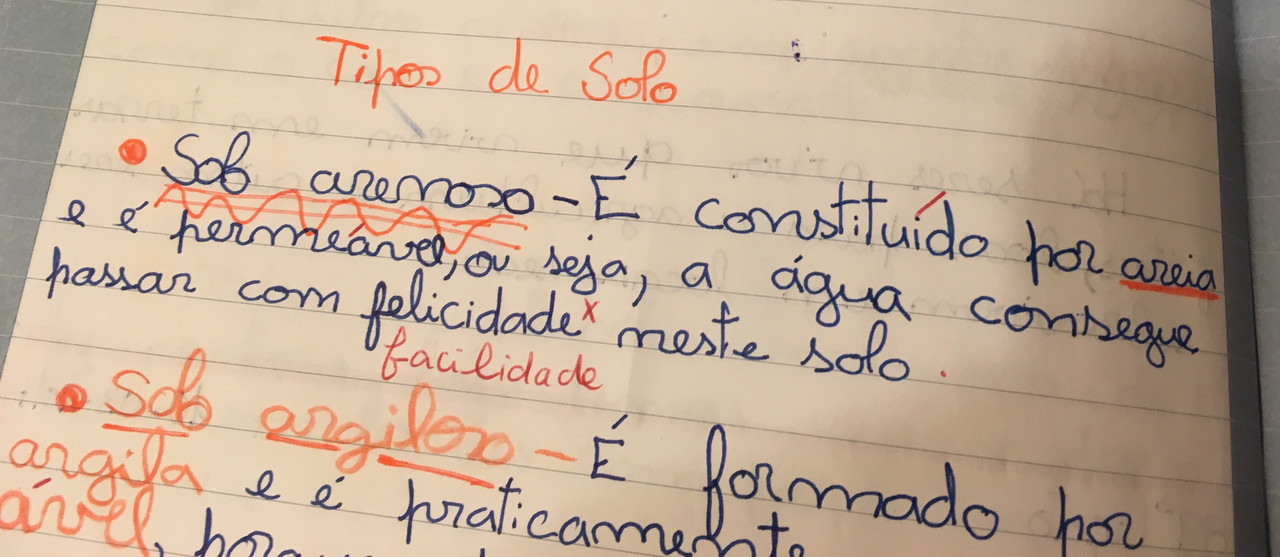 Tipos de Solo
Solo arenoso - É constituído por areia
e é permeável, ou seja, a água consegue
passar com felicidade x neste solo.
facilidade
Solo argiloso - É formado por
argila e é praticamente
ável,